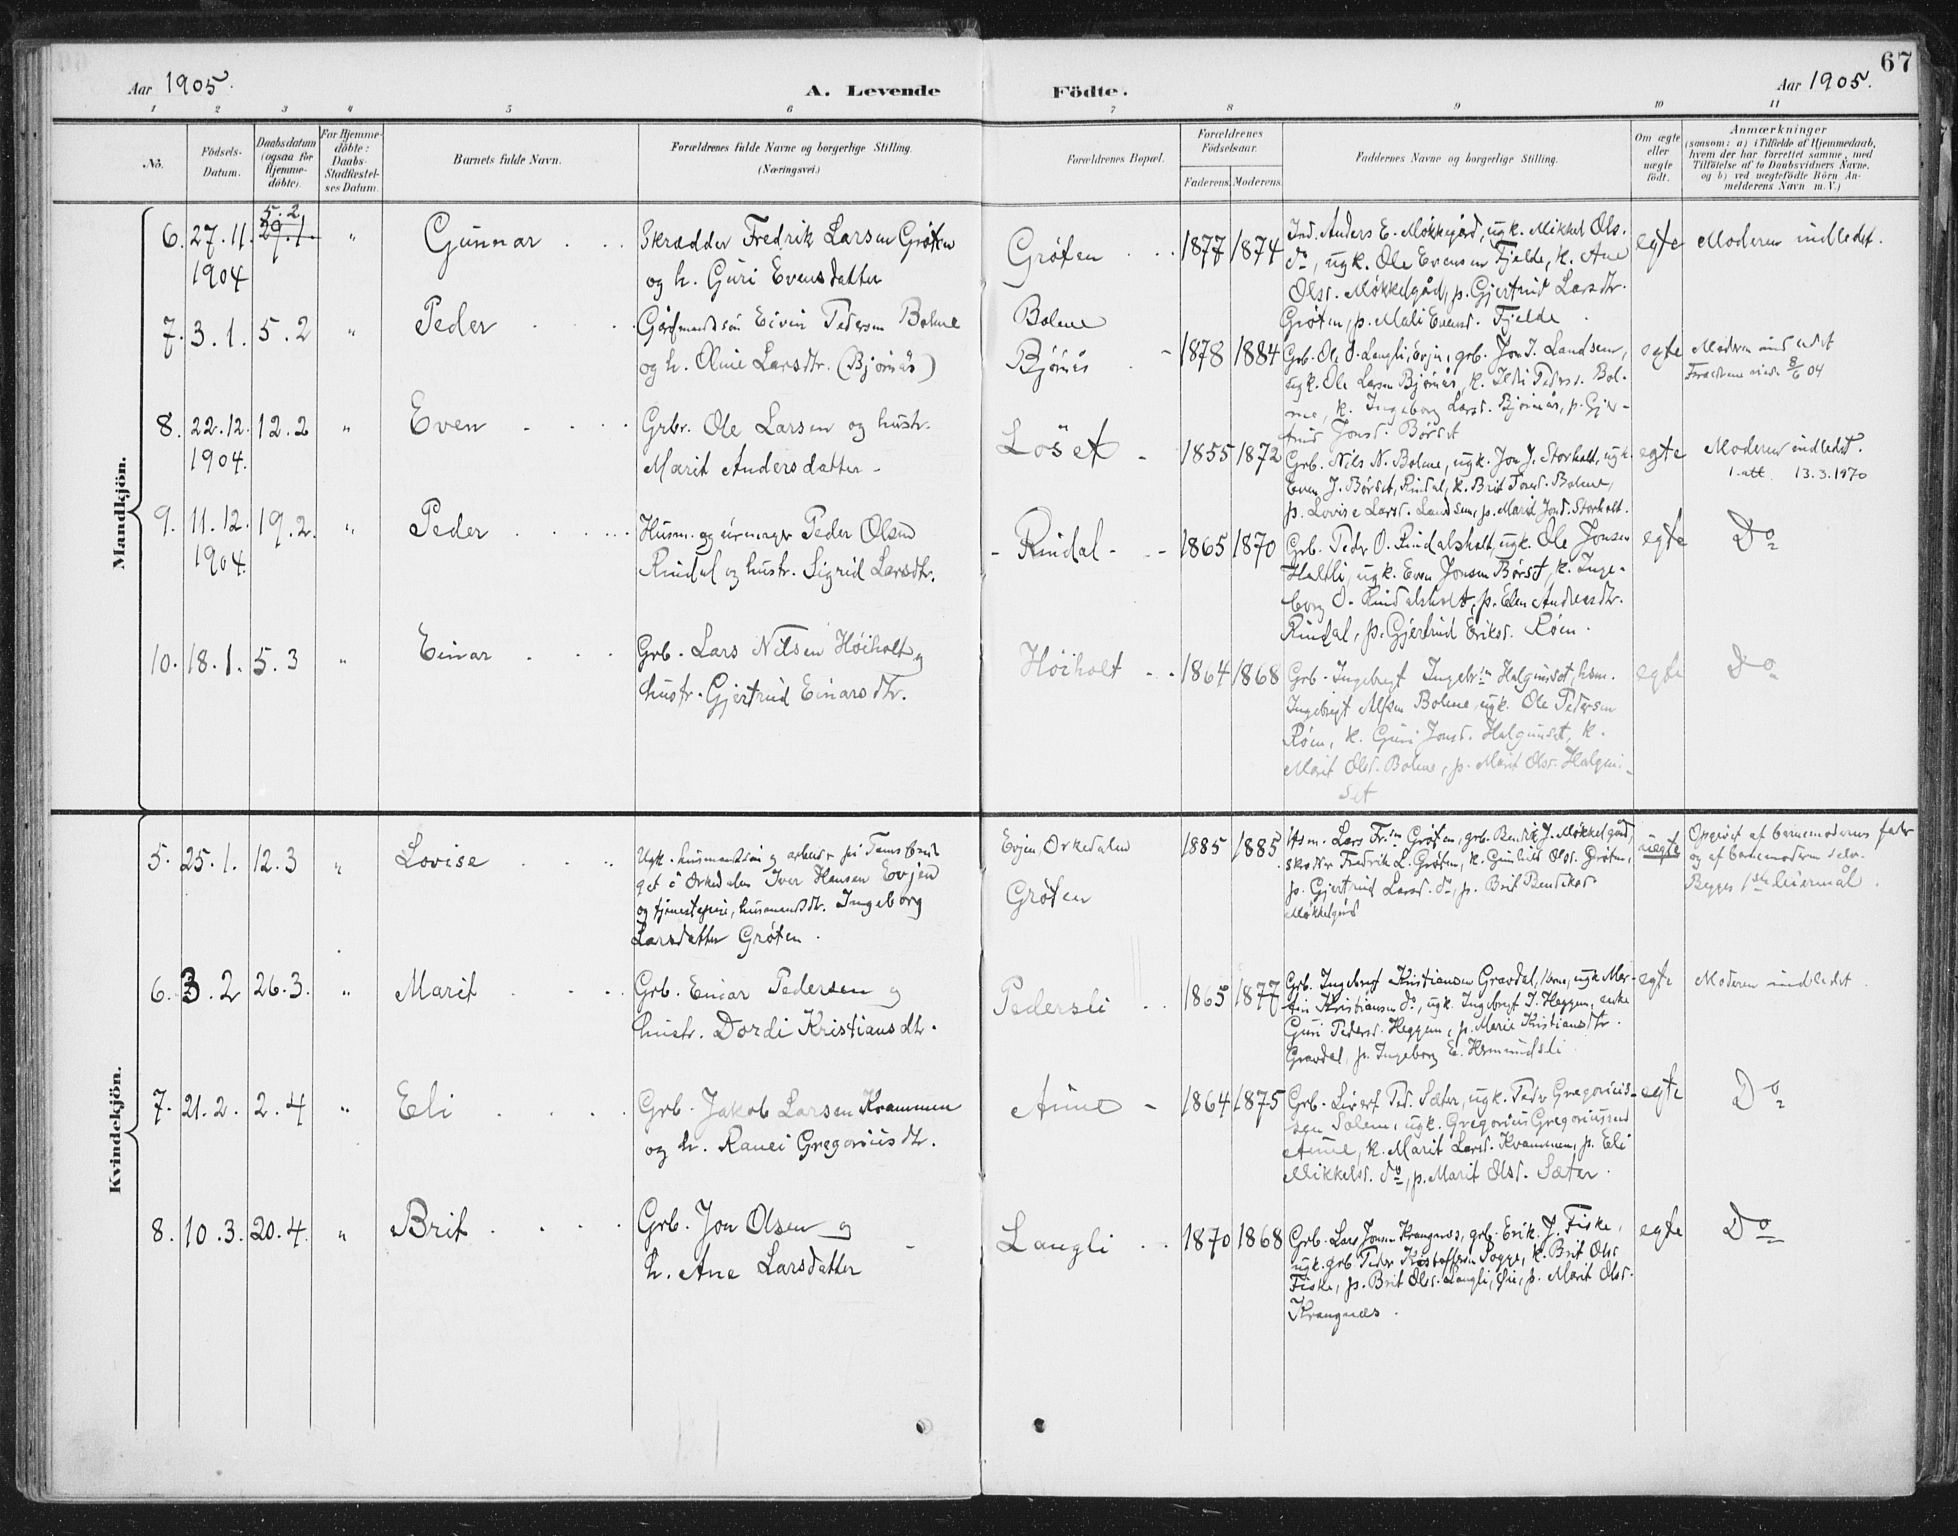 67
Aar 1905.
A. Levende Födte.
Aar 1905.
1 2 3 4 5 6 7 8 9 10 11
No.
Födsels-Datum.
Daabsdatum (ogsaa for Hjemme-döbte).
For Hjemme-döbte: Daabs-Stadfæstel-ses Datum.
Barnets fulde Navn.
Forældrenes fulde Navne og borgerlige Stilling.
(Næringsvei.)
Forældrenes Bopæl.
Forældrenes Födselsaar.
Faderens. Moderens.
Faddernes Navne og borgerlige Stilling.
Om ægte eller uægte födt.
Anmærkninger
(saasom: a) i Tilfælde af Hjemmedaab,
hvem der har forrettet samme, med
Tilföielse af to Daabsvidners Navne,
og b) ved uægtefödte Börn An-
melderens Navn m. V.)
Mandkjön.
6. 27.11. 1904 29.1. 5.2 " Gunnar
Skrædder Fredrik Larsen Grøten
og h. Guri Evensdatter
Grøten 1877 1874
Ind. Anders E. Møkkegård, ugk. Mikkel Ols.
do, ugk. Ole Evensen Fjelde, k. Ane
Olsd. Møkkelgård, p. Gjertrud Larsdtr.
Grøten, p. Mali Evensd. Fjelde.
egte Moderen indledet.
7. 3.1. 5.2 " Peder
Gårdmandssøn Eivin Pedersen Bolme
og h. Oline Larsdtr. (Bjørnås)
Bolme
Bjørnås 1878 1884
Grb. Ole O. Langli, Evjen, grb. Jon J. Landsem,
ugk. Ole Larsen Bjørnås, k. Ildri Pedersd. Bol-
me, k. Ingeborg Larsd. Bjørnås, p. Gjer-
trud Jonsd. Børset
egte Moderen indledet
Forældrene viede 8/6 04
8. 22.12. 1904. 12.2 " Even
Grbr. Ole Larsen og hustr.
Marit Andersdatter
Løset 1855 1872
Grb. Nils N. Bolme, ugk. Jon J. Storholt, ugk.
Even J. Børset, Rindal, k. Brit Tored. Bolme,
p. Lovise Larsd. Landsem, p. Marit Jonsd. Storholt.
egte Moderen indledet.
1 att. 13.3.1970
9. 11.12. 1904. 19.2. " Peder
Husm. og urmager Peder Olsen
Rindal og hustr. Sigrid Larsdtr.
Rindal 1865 1870
Grb. Peder O. Rindalsholt, ugk. Ole Jonsen
Haltli, ugk. Even Jonsen Børset, k. Inge-
borg O. Rindalsholt, p. Elen Andersdtr.
Rindal, p. Gjertrud Eriksd. Røen.
egte Do
10. 18.1. 5.3 " Einar
Grb. Lars Nilsen Høiholt og
hustr. Gjertrud Einarsdtr.
Høiholt 1864 1868
Grb. Ingebrigt Ingebr.sn Halgunset, hsm.
Ingebrigt Alfsen Bolme, ugk. Ole Pedersen
Røen, k. Guri Jonsd. Halgunset, k.
Marit Olsd. Bolme, p. Marit Olsd. Halgun-
set
egte Do
Kvindekjön.
5. 25.1. 12.3 " Lovise
get i Orkedalen Iver Hansen Evjen
og tjenestepige, husmandsdtr. Ingeborg
Larsdatter Grøten.
Evjen, Orkedalen
Grøten
1885 1885
Hsm. Lars Fr.sn Grøten, grb. Bendik J. Møkkelgård,
skrædder Fredrik L. Grøten, k. Gunhild Olsd. Grøten,
p. Gjertrud Larsd. do, p. Brit Bendiksd.
Møkkelgård
uægte
Opgivet af barnemoderens fader
og af barnemoderen selv.
Begges 1ste leiermål.
6. 3.2 26.3. " Marit
Grb. Einar Pedersen og
hustr. Dordi Kristiansdtr.
Pedersli 1865 1877
Grb. Ingebrigt Kristiansen Gravdal, ugk. Mar-
tin Kristiansen do, ugk. Ingebrigt I. Heggem, enke
Guri Pedersd. Heggem, p. Marie Kristiansdtr.
Gravdal, p. Ingeborg E. Hermundsli
egte Moderen indledet.
7. 21.2. 2.4 " Eli
Grb. Jakob Larsen Kvammen
og h. Ranei Gregoriusdtr.
Aune 1864 1875
Grb. Sivert Ped. Sæter, ugk. Peder Gregorius-
sen Solem, ugk. Gregorius Gregoriussen
Aune, k. Marit Larsd. Kvammen, p. Eli
Mikkelsd. do, p. Marit Olsd. Sæter.
egte Do
8. 10.3. 20.4. " Brit
Grb. Jon Olsen og
h. Ane Larsdatter
Langli 1870 1868
Grb. Lars Jonsen Krangnes, grb. Erik J. Fiske,
ugk. grb. Peder Kristoffersen Sogge, k. Brit Olsd.
Fiske, p. Brit Olsd. Langli, p. Marit Olsd.
Krangnæs.
egte Do